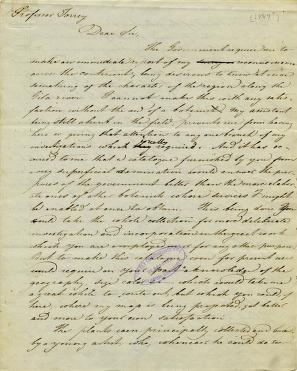 Professor Torrey
[1847?]
Dear Sir,
The Government require me to
make an immediate report of my reconnoissance
across the continent, being desirous to know at once
something of the character of the region along the
Gila river. I cannot make this with any satis-
faction without the aid of a botanist. My assistants
being still absent in the field, prevents me from
giving that attention to any one branch of my
investigation which is really required. And it has oc-
cured to me that a catalogue furnished by you from
a superficial examination would answer the pur-
poses of the government better than the more elabo-
rate one of other botanists whose services I might
be enabled to obtain. This being done you
could take the whole collection for more deliberate
investigation and incorporation in the great work
which you are employed upon for any other purpose.
But to make this catalogue even for present use
would require on your part a knowledge of the
geography, which would take me
a great while to write out, but which you could
here, where my map is being prepared, get better
and more to your own satisfaction.
The plants were principally collected
by a young artist who, whenever he could do so